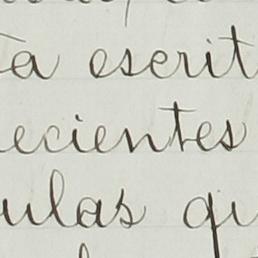 ta escrit
ecientes
ulas qu